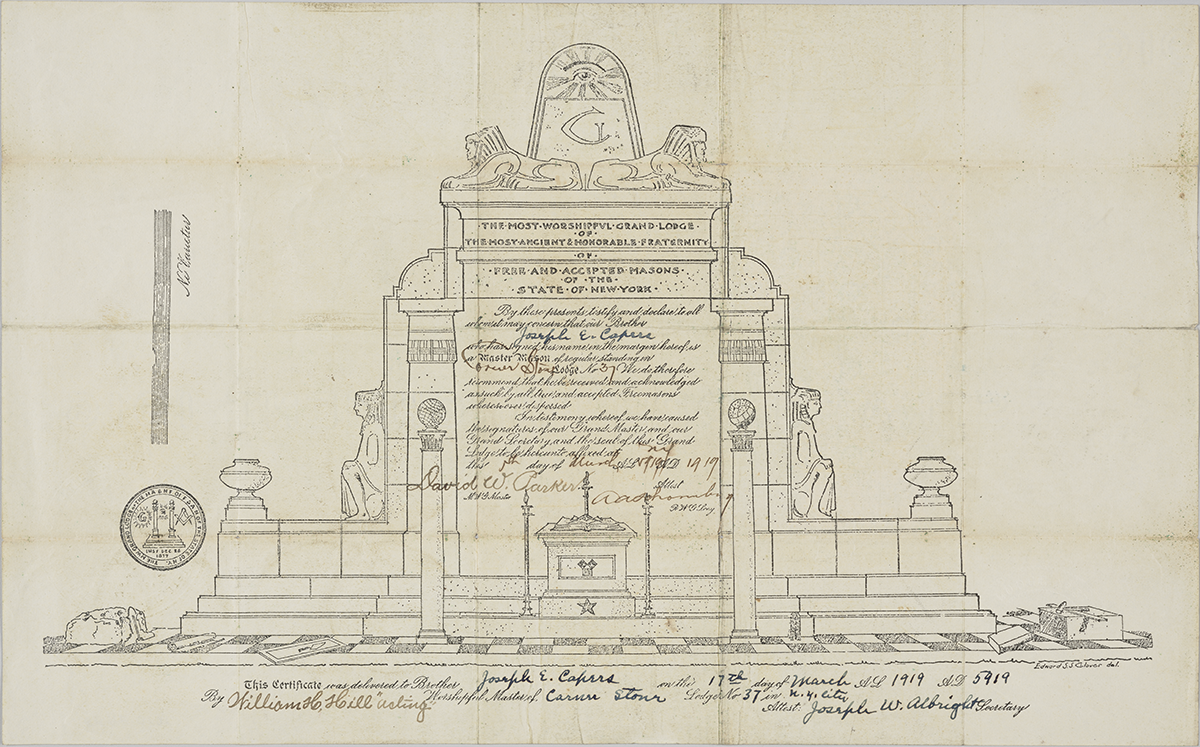 G
·THE·MOST·WORSHIPFVL·GRAND·LODGE·
·OF·
THE·MOST·ANCIENT&HONORABLE·FRATERNITY
·OF·
·FREE·AND·ACCEPTED·MASONS·
OF·THE·
·STATE·OF·NEW·YORK·
By these presents, testify and declare to all
whom it may concern that our Brother
Joseph E. Capers
who has signed his name in the margin hereof, is
a Master Mason of regular standing in
Corner Stone Lodge No 37 We do therefore
recommend that he be received and acknowledged
as such by all true and accepted Freemasons
wheresoever dispersed
In testimony whereof, we have caused
the signatures of our Grand Master and our
Grand Secretary, and the seal of this Grand
Lodge to be hereunto affixed at NY
this day of A.L. A.D. 1919
David W. Parker Attest
M.W.G. Master
R.W.G. Secy
Ne Varietur
INST DEC 28
Edward S.S. del.
This Certificate was delivered to Brother Joseph E. Capers on the 17th day of March A.L. 1919 A.D 5919
By William H. Hill "acting" Worshipful Master of Corner Stone Lodge No 37 in N.Y. City
Attest Joseph W. Albright Secretary